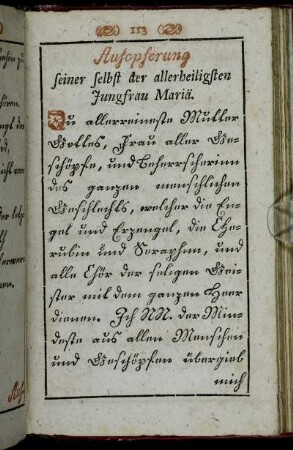 113
Aufopferung
seiner selbst der allerheiligsten
Jungfrau Mariä.
Du allerreineste Mutter
Gottes, Frau aller Ge-
schöpfe, und Beherrscherinn
des ganzen menschlichen
Geschlechts, welcher die En-
gel und Erzengel, die Che-
rubin und Seraphin, und
alle Chör der seligen Gei-
ster mit dem ganzen Heer
dienen. Ich NN. der Min-
deste aus allen Menschen
und Geschöpfen übergieb
mich